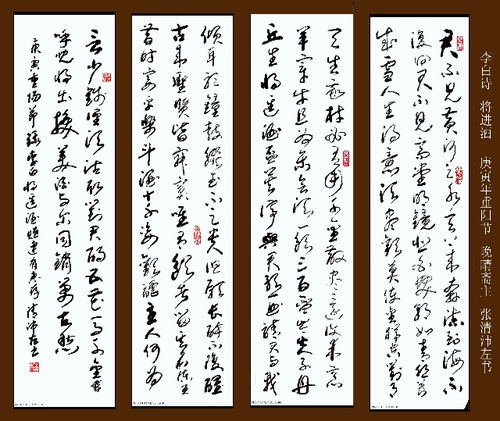 李白诗 将进酒 庚寅年重阳节 晚晴斋主 张清沛左书
君不见黄河之水天上来奔流到海不
复回君不见高堂明镜悲白发朝如青丝暮
成雪人生得意须尽欢莫使金樽空对月
天生我材必有用千金散尽还复来烹
羊宰牛且为乐会须一饮三百杯岑夫子丹
丘生将进酒杯莫停与君歌一曲请君为我
倾耳听钟鼓馔玉不足贵但愿长醉不复醒
古来圣贤皆寂寞唯有饮者留其名陈王
昔时宴平乐斗酒十千恣欢谑主人何为
言少钱径须沽取对君酌五花马千金裘
呼儿将出换美酒与尔同销万古愁
庚寅重阳节录李白将进酒